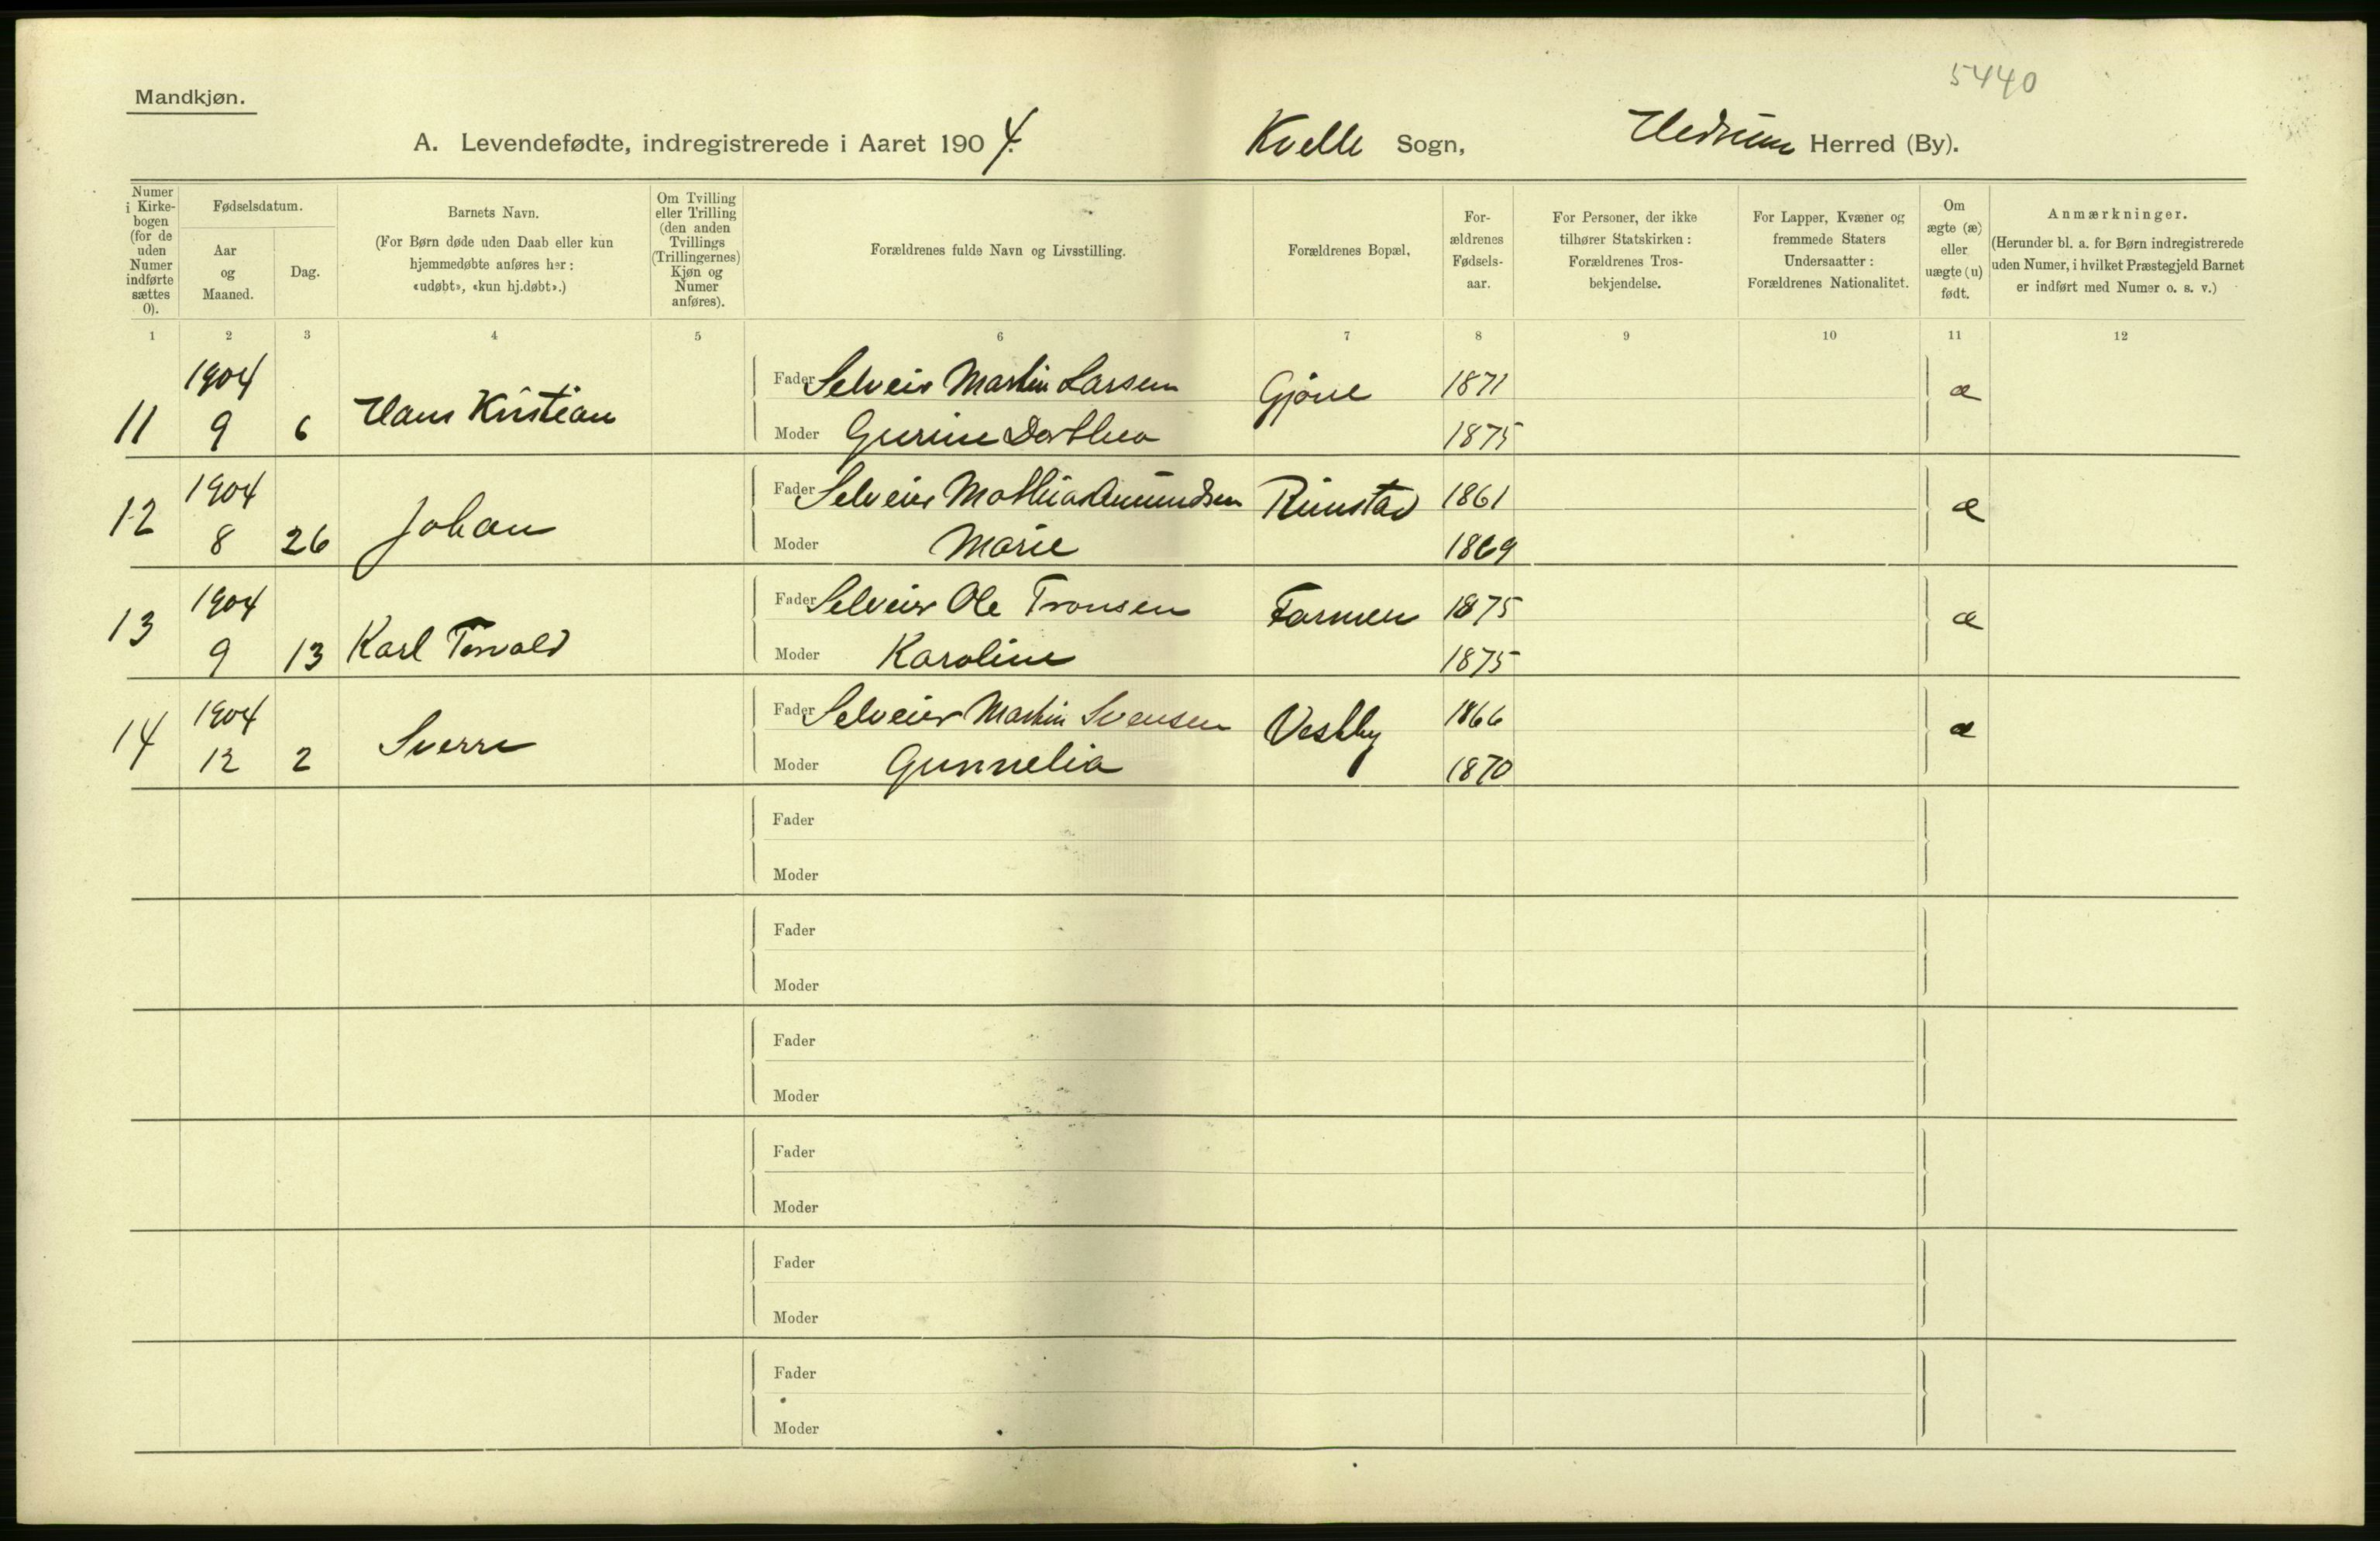 5440
Mandkjøn.
A. Levendefødte, indregistrerede i Aaret 1904. Kvelle Sogn, Hedrum Herred (By).
Numer i Kirkebogen (for de uden Numer indførte sættes 0).
Fødselsdatum.
Aar og Maaned.
Dag.
Barnets Navn.
(For Børn døde uden Daab eller kun hjemmedøbte anføres her: «udøbt», «kun hj.døbt».)
Om Tvilling eller Trilling (den anden Tvillings (Trillingernes) Kjøn og Numer anføres).
Forældrenes fulde Navn og Livsstilling.
Forældrenes Bopæl.
Forældrenes Fødselsaar.
For Personer, der ikke tilhører Statskirken: Forældrenes Trosbekjendelse.
For Lapper, Kvæner og fremmede Staters Undersaatter: Forældrenes Nationalitet.
Om ægte (æ) eller uægte (u) født.
Anmærkninger.
(Herunder bl. a. for Børn indregistrerede uden Numer, i hvilket Præstegjeld Barnet er indført med Numer o. s. v.)
1 2 3 4 5 6 7 8 9 10 11 12
11 1904 9 6 Hans Kristian Fader Selveier Martin Larsen Gjøne 1871 æ
Moder Gurine Dorthea 1875
12 1904 8 26 Johan Fader Selveier Mathias Amundsen Rimstad 1861 æ
Moder Marie 1869
13 1904 9 13 Karl Torvald Fader Selveier Ole Tronsen Farmen 1875 æ
Moder Karoline 1875
14 1904 12 2 Sverre Fader Selveier Martin Svensen Vestby 1866 æ
Moder Gunnelia 1870
Fader
Moder
Fader
Moder
Fader
Moder
Fader
Moder
Fader
Moder
Fader
Moder